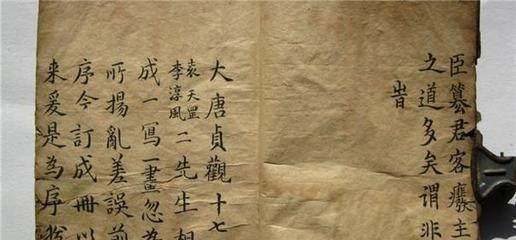 臣篡君客癈主
之道多矣謂非
昔
大唐貞觀十七
袁天罡
李淳風
二先生相
成一寫一畫忽為
所揚亂差誤前
序今訂成冊以
来爰是為序